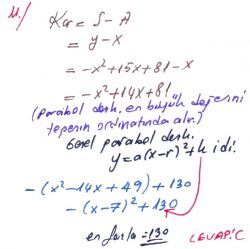 11./ Kar = S - A
= y - x
= -x² + 15x + 81 - x
= -x² + 14x + 81
(parabol denk. en büyük değerini
tepenin ordinatında alır.)
Genel parabol denk.
y = a(x - r)² + k idi.
-(x² - 14x + 49) + 130
-(x - 7)² + 130
en fazla = 130
CEVAP: C